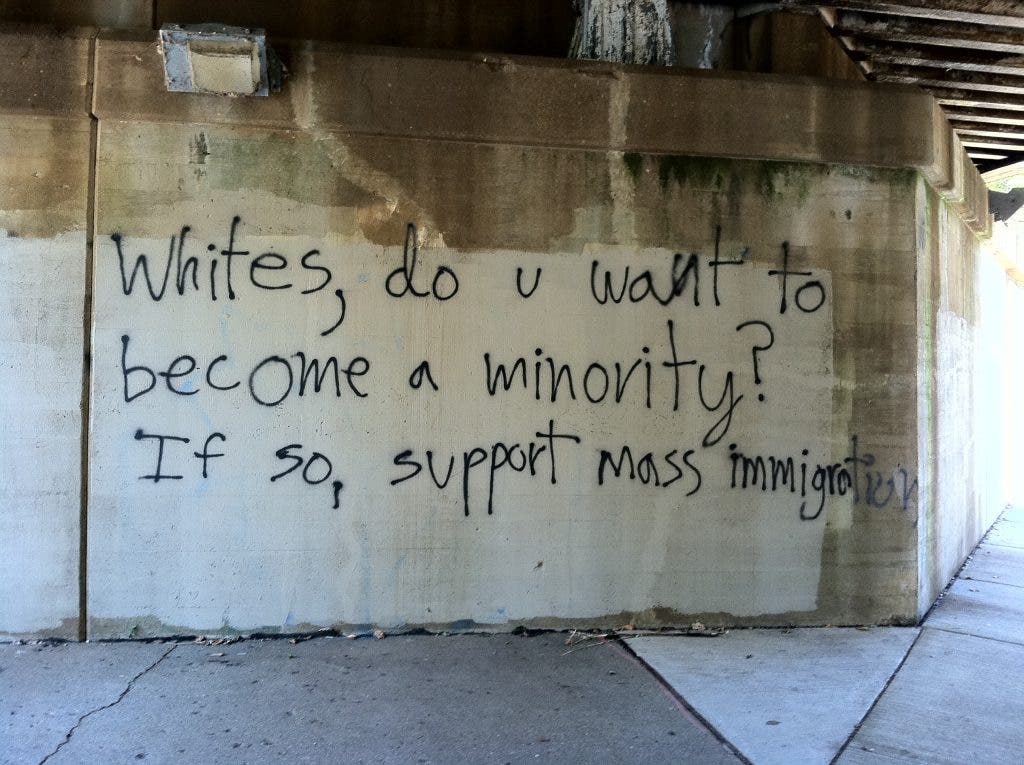 Whites, do u want to
become a minority?
If so, support mass immigration